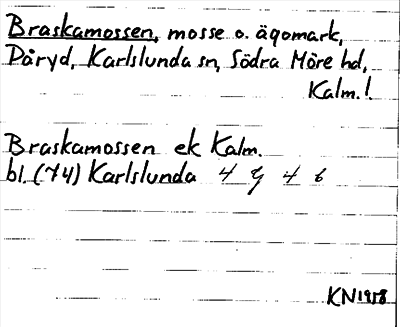 Braskamossen, mosse o. ägomark,
Påryd, Karlslunda sn, Södra Möre hd,
Kalm. l.
Braskamossen ek Kalm.
bl. (74) Karlslunda 4 g 4 b
KN1958